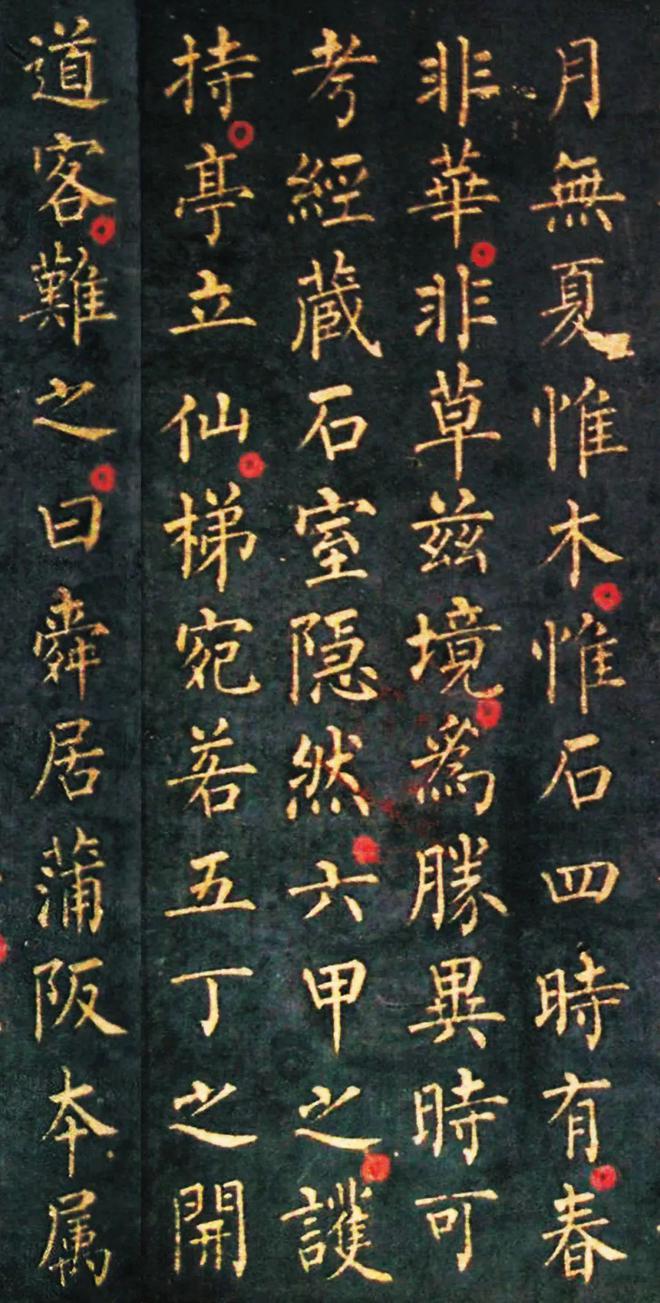 月無夏惟木惟石四時有春
非華非草兹境爲勝異時可
考經蔵石室隠然六甲之護
持亭立仙梯宛若五丁之開
道客難之曰舜居蒲阪本属